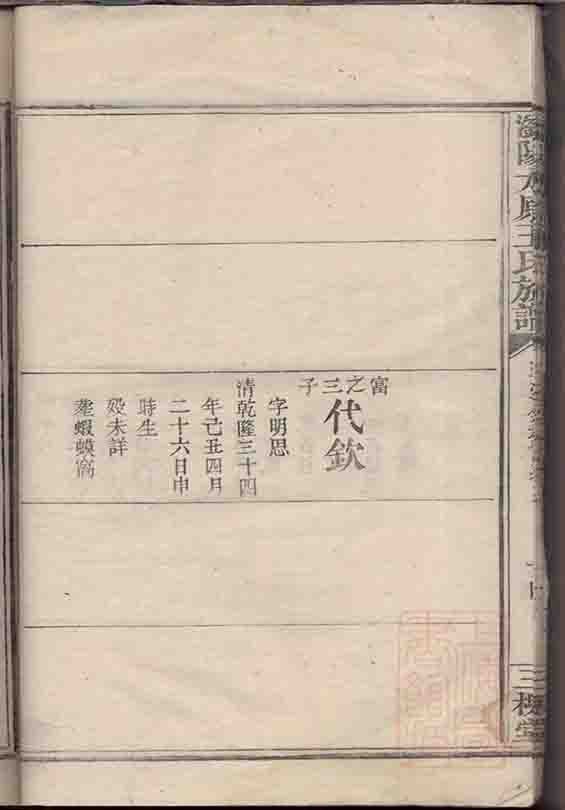 富之三子
代欽
字明思
清乾隆三十四
年己丑四月
二十六日申
時生
歿未詳
塟蝦蟆窩
王氏族譜
三槐堂